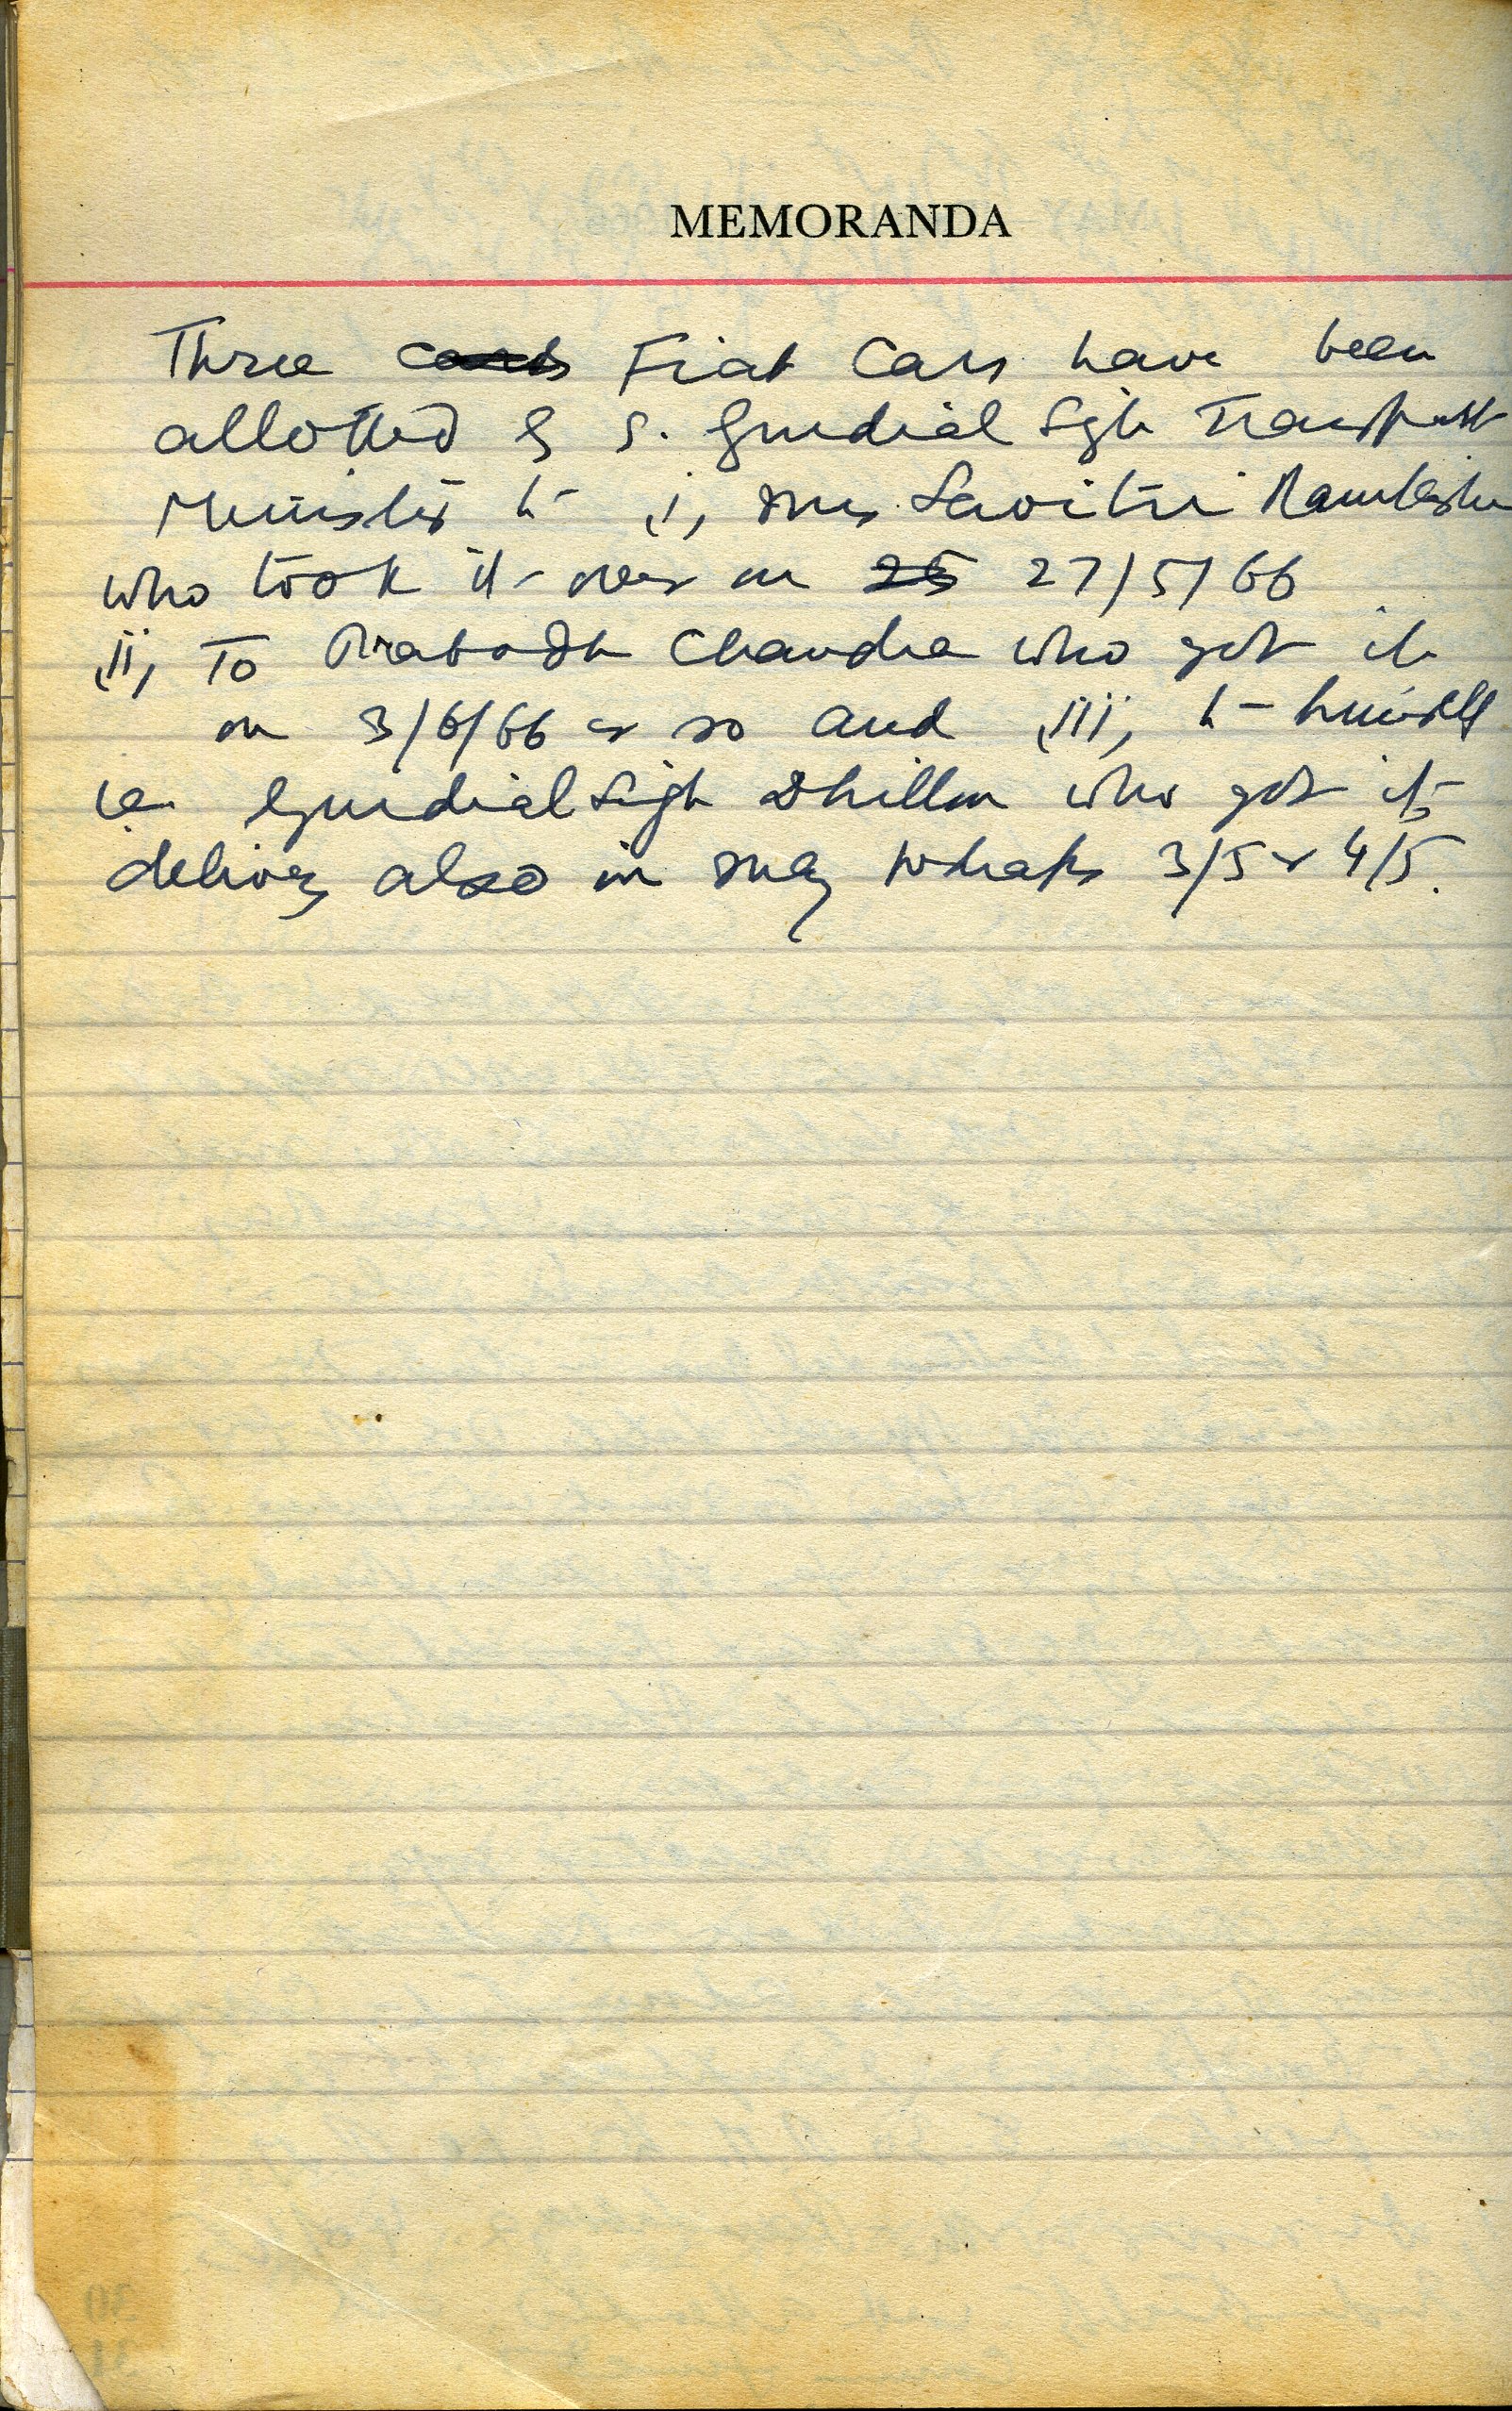 MEMORANDA
Three Fiat Cars have been
allotted by S. Gurdial Sgh Transport
Minister to (i) Mrs Savitri
who took it over on 25 27/5/66
(ii) To Prabodh Chandra who got it
on 3/6/66 or so and (iii) to himself
ie Gurdial Singh Dhillon who got its
delivery also in may perhaps 3/5 or 4/5.